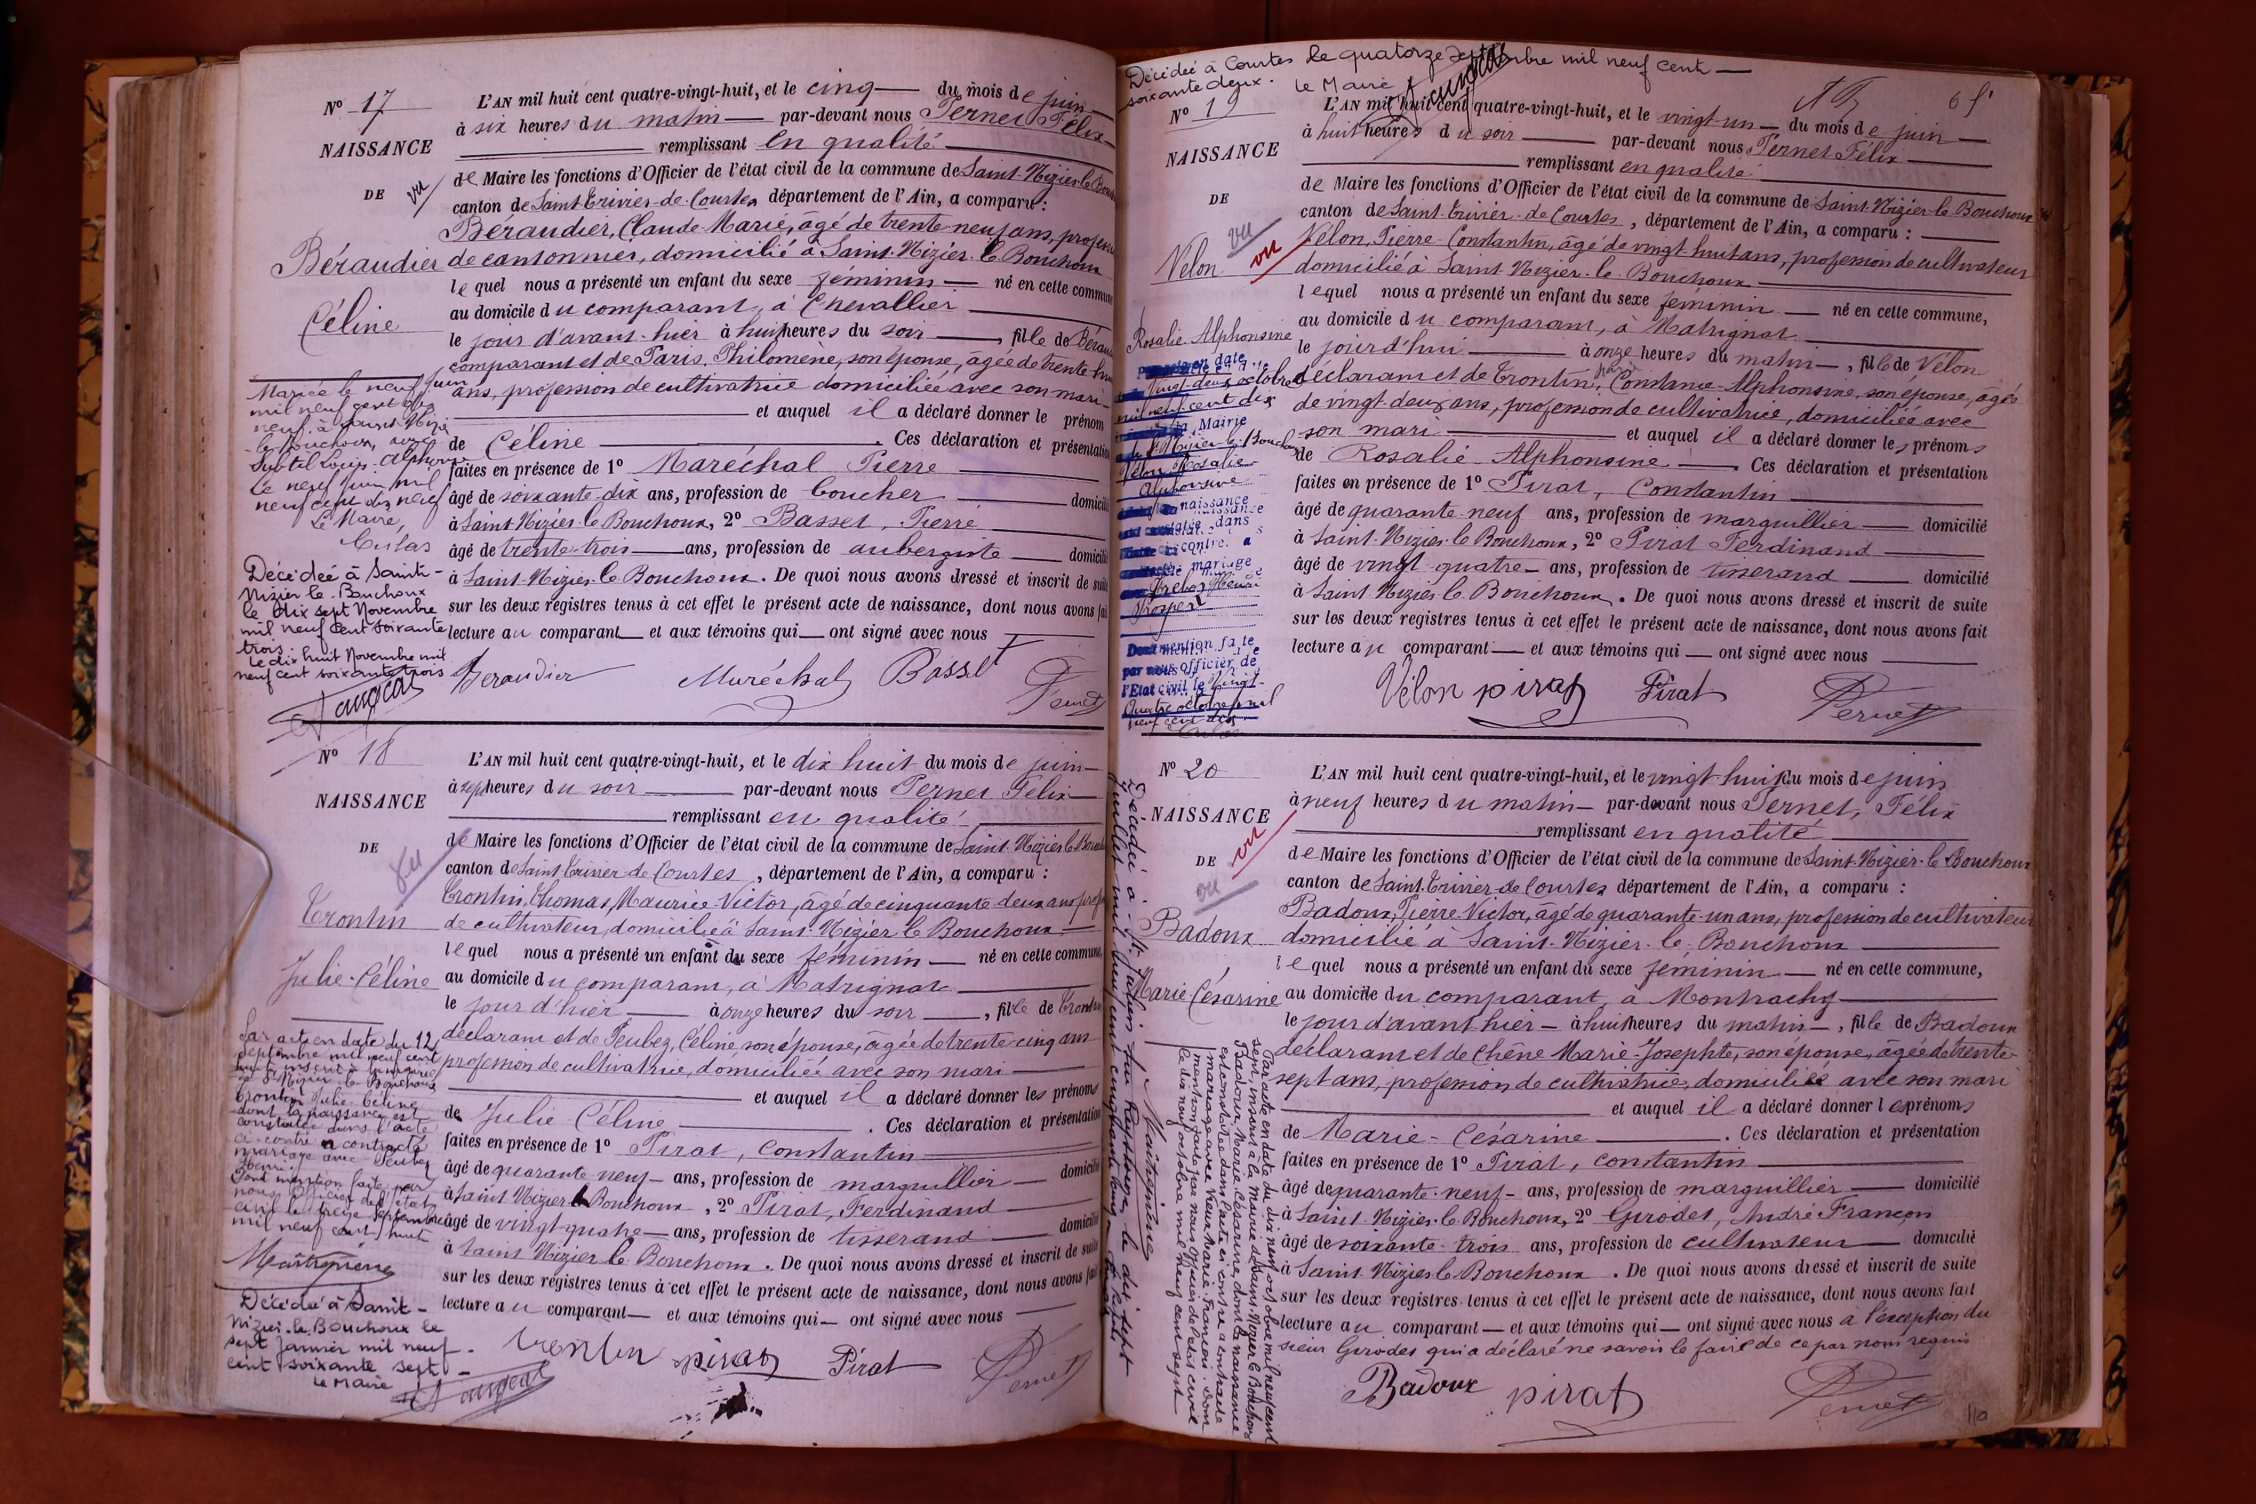 N° 17
NAISSANCE
DE
vu
Béraudier
Céline
Mariée le neuf juin
mil neuf cent dix
neuf à Saint-Nizier
le Bouchoux, avec
Subtil Louis Alphonse
Le neuf juin mil
neuf cent dix neuf
Le Maire,
Décédée à Saint-
Nizier le Bouchoux
le dix sept Novembre
mil neuf cent soixante
trois.
Le dix huit Novembre mil
neuf cent soixante trois
L'AN mil huit cent quatre-vingt-huit, et le cinq du mois de juin
à six heures du matin par-devant nous Pernet Félix
remplissant en qualité
de Maire les fonctions d'Officier de l'état civil de la commune de Saint-Nizier-le-Bouchoux
canton de Saint-Trivier-de-Courtes département de l'Ain, a comparu :
Béraudier, Claude-Marie, âgé de trente-neuf ans, profession
de cantonnier, domicilié à Saint-Nizier-le-Bouchoux
lequel nous a présenté un enfant du sexe féminin né en cette commune
au domicile du comparant, à Chevallier
le jour d'avant-hier à huit heures du soir, fille de Béraudier
comparant et de Paris, Philomène, son épouse, âgée de trente-huit
ans, profession de cultivatrice domiciliée avec son mari
et auquel il a déclaré donner le prénom
de Céline. Ces déclaration et présentation
faites en présence de 1° Maréchal Pierre
âgé de soixante-dix ans, profession de boucher domicilié
à Saint-Nizier-le-Bouchoux, 2° Basset, Pierre
âgé de trente-trois ans, profession de aubergiste domicilié
à Saint-Nizier-le-Bouchoux. De quoi nous avons dressé et inscrit de suite
sur les deux registres tenus à cet effet le présent acte de naissance, dont nous avons fait
lecture au comparant et aux témoins qui ont signé avec nous
Beraudier Maréchal Basset Pernet
N° 18
NAISSANCE
DE
Vu
Trontin
Julie-Céline
Par acte en date du 12
septembre mil neuf cent
huit inscrit à la mairie
de St Nizier-le-Bouchoux
Trontin Julie-Céline
dont la naissance est
constatée dans l'acte
ci-contre a contracté
mariage avec Peubez
Henri.
Dont mention faite par
nous Officier de l'état
civil le treize septembre
mil neuf cent huit
Décédée à Saint-
Nizier-le-Bouchoux le
sept Janvier mil neuf-
cent soixante sept-
Le Maire
L'AN mil huit cent quatre-vingt-huit, et le dix huit du mois de juin
à sept heures du soir par-devant nous Pernet Félix
remplissant en qualité
de Maire les fonctions d'Officier de l'état civil de la commune de Saint-Nizier-le-Bouchoux
canton de Saint-Trivier-de-Courtes, département de l'Ain, a comparu :
Trontin, Thomas, Maurice-Victor, âgé de cinquante-deux ans, profession
de cultivateur, domicilié à Saint-Nizier-le-Bouchoux
lequel nous a présenté un enfant du sexe féminin né en cette commune,
au domicile du comparant, à Matrignat
le jour d'hier à onze heures du soir, fille de Trontin
déclarant et de Peubez, Céline son épouse, âgée de trente-cinq ans
profession de cultivatrice, domiciliée avec son mari
et auquel il a déclaré donner les prénoms
de Julie-Céline. Ces déclaration et présentation
faites en présence de 1° Pirat, Constantin
âgé de quarante-neuf ans, profession de marguillier domicilié
à Saint-Nizier-le-Bouchoux, 2° Pirat, Ferdinand
âgé de vingt-quatre ans, profession de tisserand domicilié
à Saint-Nizier-le-Bouchoux. De quoi nous avons dressé et inscrit de suite
sur les deux registres tenus à cet effet le présent acte de naissance, dont nous avons fait
lecture au comparant et aux témoins qui ont signé avec nous
trontin pirat Pirat Pernet
Décédée à Courtes le quatorze Septembre mil neuf cent
soixante deux. Le Maire
N° 19
NAISSANCE
DE
vu
vu
Vélon
Rosalie-Alphonsine
Par acte en date
vingt-deux octobre
mil neuf cent dix
Mairie
St Nizier-le-Bouchoux
Vélon Rosalie
Alphonsine
naissance
constatée dans
ci-contre a
mariage
Henri
Prosper
Dont mention faite
par nous officier de
l'Etat civil le vingt-
quatre octobre mil
neuf cent dix
L'AN mil huit cent quatre-vingt-huit, et le vingt-un du mois de juin
à huit heures du soir par-devant nous Pernet Félix
remplissant en qualité
de Maire les fonctions d'Officier de l'état civil de la commune de Saint-Nizier-le-Bouchoux
canton de Saint-Trivier-de-Courtes, département de l'Ain, a comparu :
Vélon, Pierre-Constantin, âgé de vingt-huit ans, profession de cultivateur
domicilié à Saint-Nizier-le-Bouchoux
lequel nous a présenté un enfant du sexe féminin né en cette commune,
au domicile du comparant, à Matrignat
le jour d'hui à onze heures du matin, fille de Vélon
déclarant et de Trontin, Constance-Alphonsine, son épouse, âgée
de vingt-deux ans, profession de cultivatrice, domiciliée avec
son mari et auquel il a déclaré donner les prénoms
de Rosalie-Alphonsine. Ces déclaration et présentation
faites en présence de 1° Pirat, Constantin
âgé de quarante-neuf ans, profession de marguillier domicilié
à Saint-Nizier-le-Bouchoux, 2° Pirat Ferdinand
âgé de vingt-quatre ans, profession de tisserand domicilié
à Saint-Nizier-le-Bouchoux. De quoi nous avons dressé et inscrit de suite
sur les deux registres tenus à cet effet le présent acte de naissance, dont nous avons fait
lecture au comparant et aux témoins qui ont signé avec nous
Vélon pirat Pirat Pernet
N° 20
NAISSANCE
DE
vu
vu
Badoux
Marie Césarine
Décédée à St Julien sur Reyssouze, le dix sept
juillet mil neuf cent cinquante
Maîtrepierre
Par acte en date du dix neuf octobre mil neuf cent
sept, inscrit à la mairie de Saint-Nizier-le-Bouchoux
Badoux, Marie-Césarine, dont la naissance
est constatée dans l'acte ci-contre a contracté
mariage avec Vieux Marie-François. Dont
mention faite par nous Officier de l'état civil
le dix neuf octobre mil neuf cent sept
L'AN mil huit cent quatre-vingt-huit, et le vingt-huit du mois de juin
à neuf heures du matin par-devant nous Pernet, Félix
remplissant en qualité
de Maire les fonctions d'Officier de l'état civil de la commune de Saint-Nizier-le-Bouchoux
canton de Saint-Trivier-de-Courtes département de l'Ain, a comparu :
Badoux, Pierre-Victor, âgé de quarante-un ans, profession de cultivateur
domicilié à Saint-Nizier-le-Bouchoux
lequel nous a présenté un enfant du sexe féminin né en cette commune,
au domicile du comparant, à Montrachy
le jour d'avant-hier à huit heures du matin, fille de Badoux
déclarant et de Chêne Marie-Josephte, son épouse, âgée de trente-
sept ans, profession de cultivatrice, domiciliée avec son mari
et auquel il a déclaré donner les prénoms
de Marie-Césarine. Ces déclaration et présentation
faites en présence de 1° Pirat, Constantin
âgé de quarante-neuf ans, profession de marguillier domicilié
à Saint-Nizier-le-Bouchoux, 2° Girodet, André-François
âgé de soixante-trois ans, profession de cultivateur domicilié
à Saint-Nizier-le-Bouchoux. De quoi nous avons dressé et inscrit de suite
sur les deux registres tenus à cet effet le présent acte de naissance, dont nous avons fait
lecture au comparant et aux témoins qui ont signé avec nous à l'exception du
sieur Girodet qui a déclaré ne savoir le faire de ce par nous requis
Badoux pirat Pernet